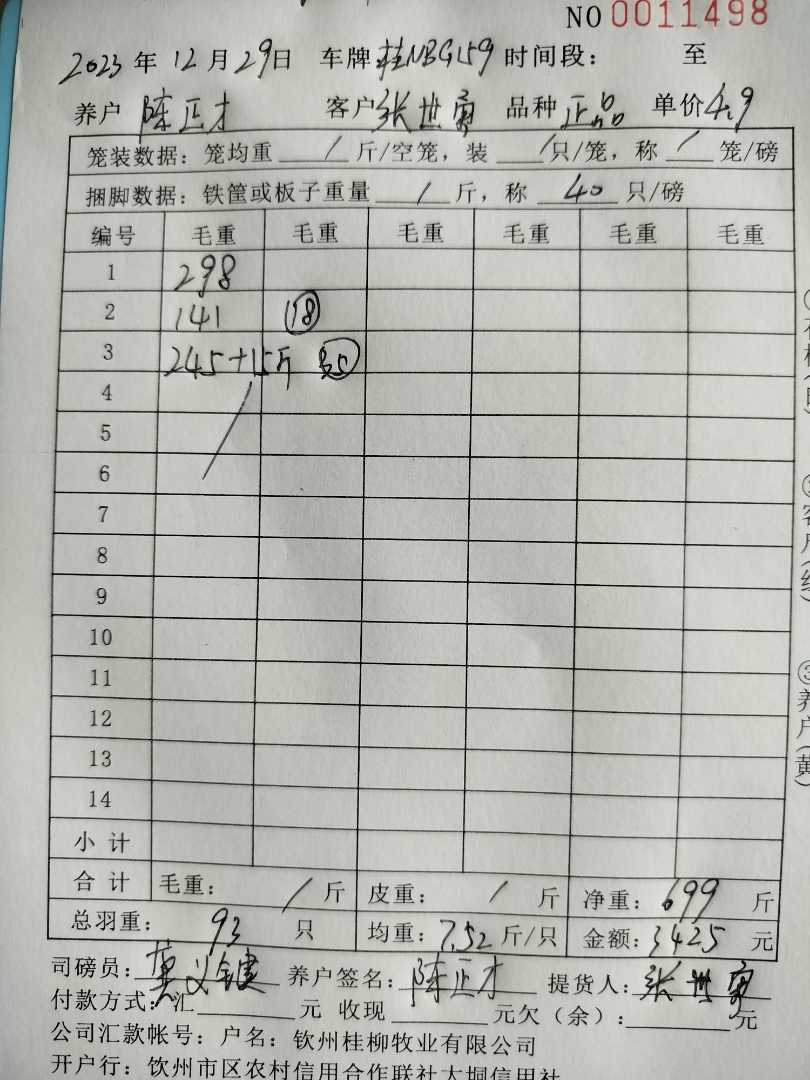 NO 0011498
2023年12月29日 车牌桂NBG159 时间段： 至
养户 陈正才 客户张世寓 品种 正品 单价4.9
笼装数据：笼均重 / 斤/空笼，装 / 只/笼，称 / 笼/磅
捆脚数据：铁筐或板子重量 / 斤，称 40 只/磅
编号 毛重 毛重 毛重 毛重 毛重 毛重
1 298
2 141 18
3 245+15斤 35
4
5
6
7
8
9
10
11
12
13
14
小计
合计 毛重： / 斤 皮重： / 斤 净重：699 斤
总羽重： 93 只 均重：7.52 斤/只 金额：3425 元
司磅员： 养户签名：陈正才 提货人：张世
付款方式：汇 元 收现 元欠（余）： 元
公司汇款帐号：户名：钦州桂柳牧业有限公司
开户行：钦州市区农村信用合作联社大垌信用社